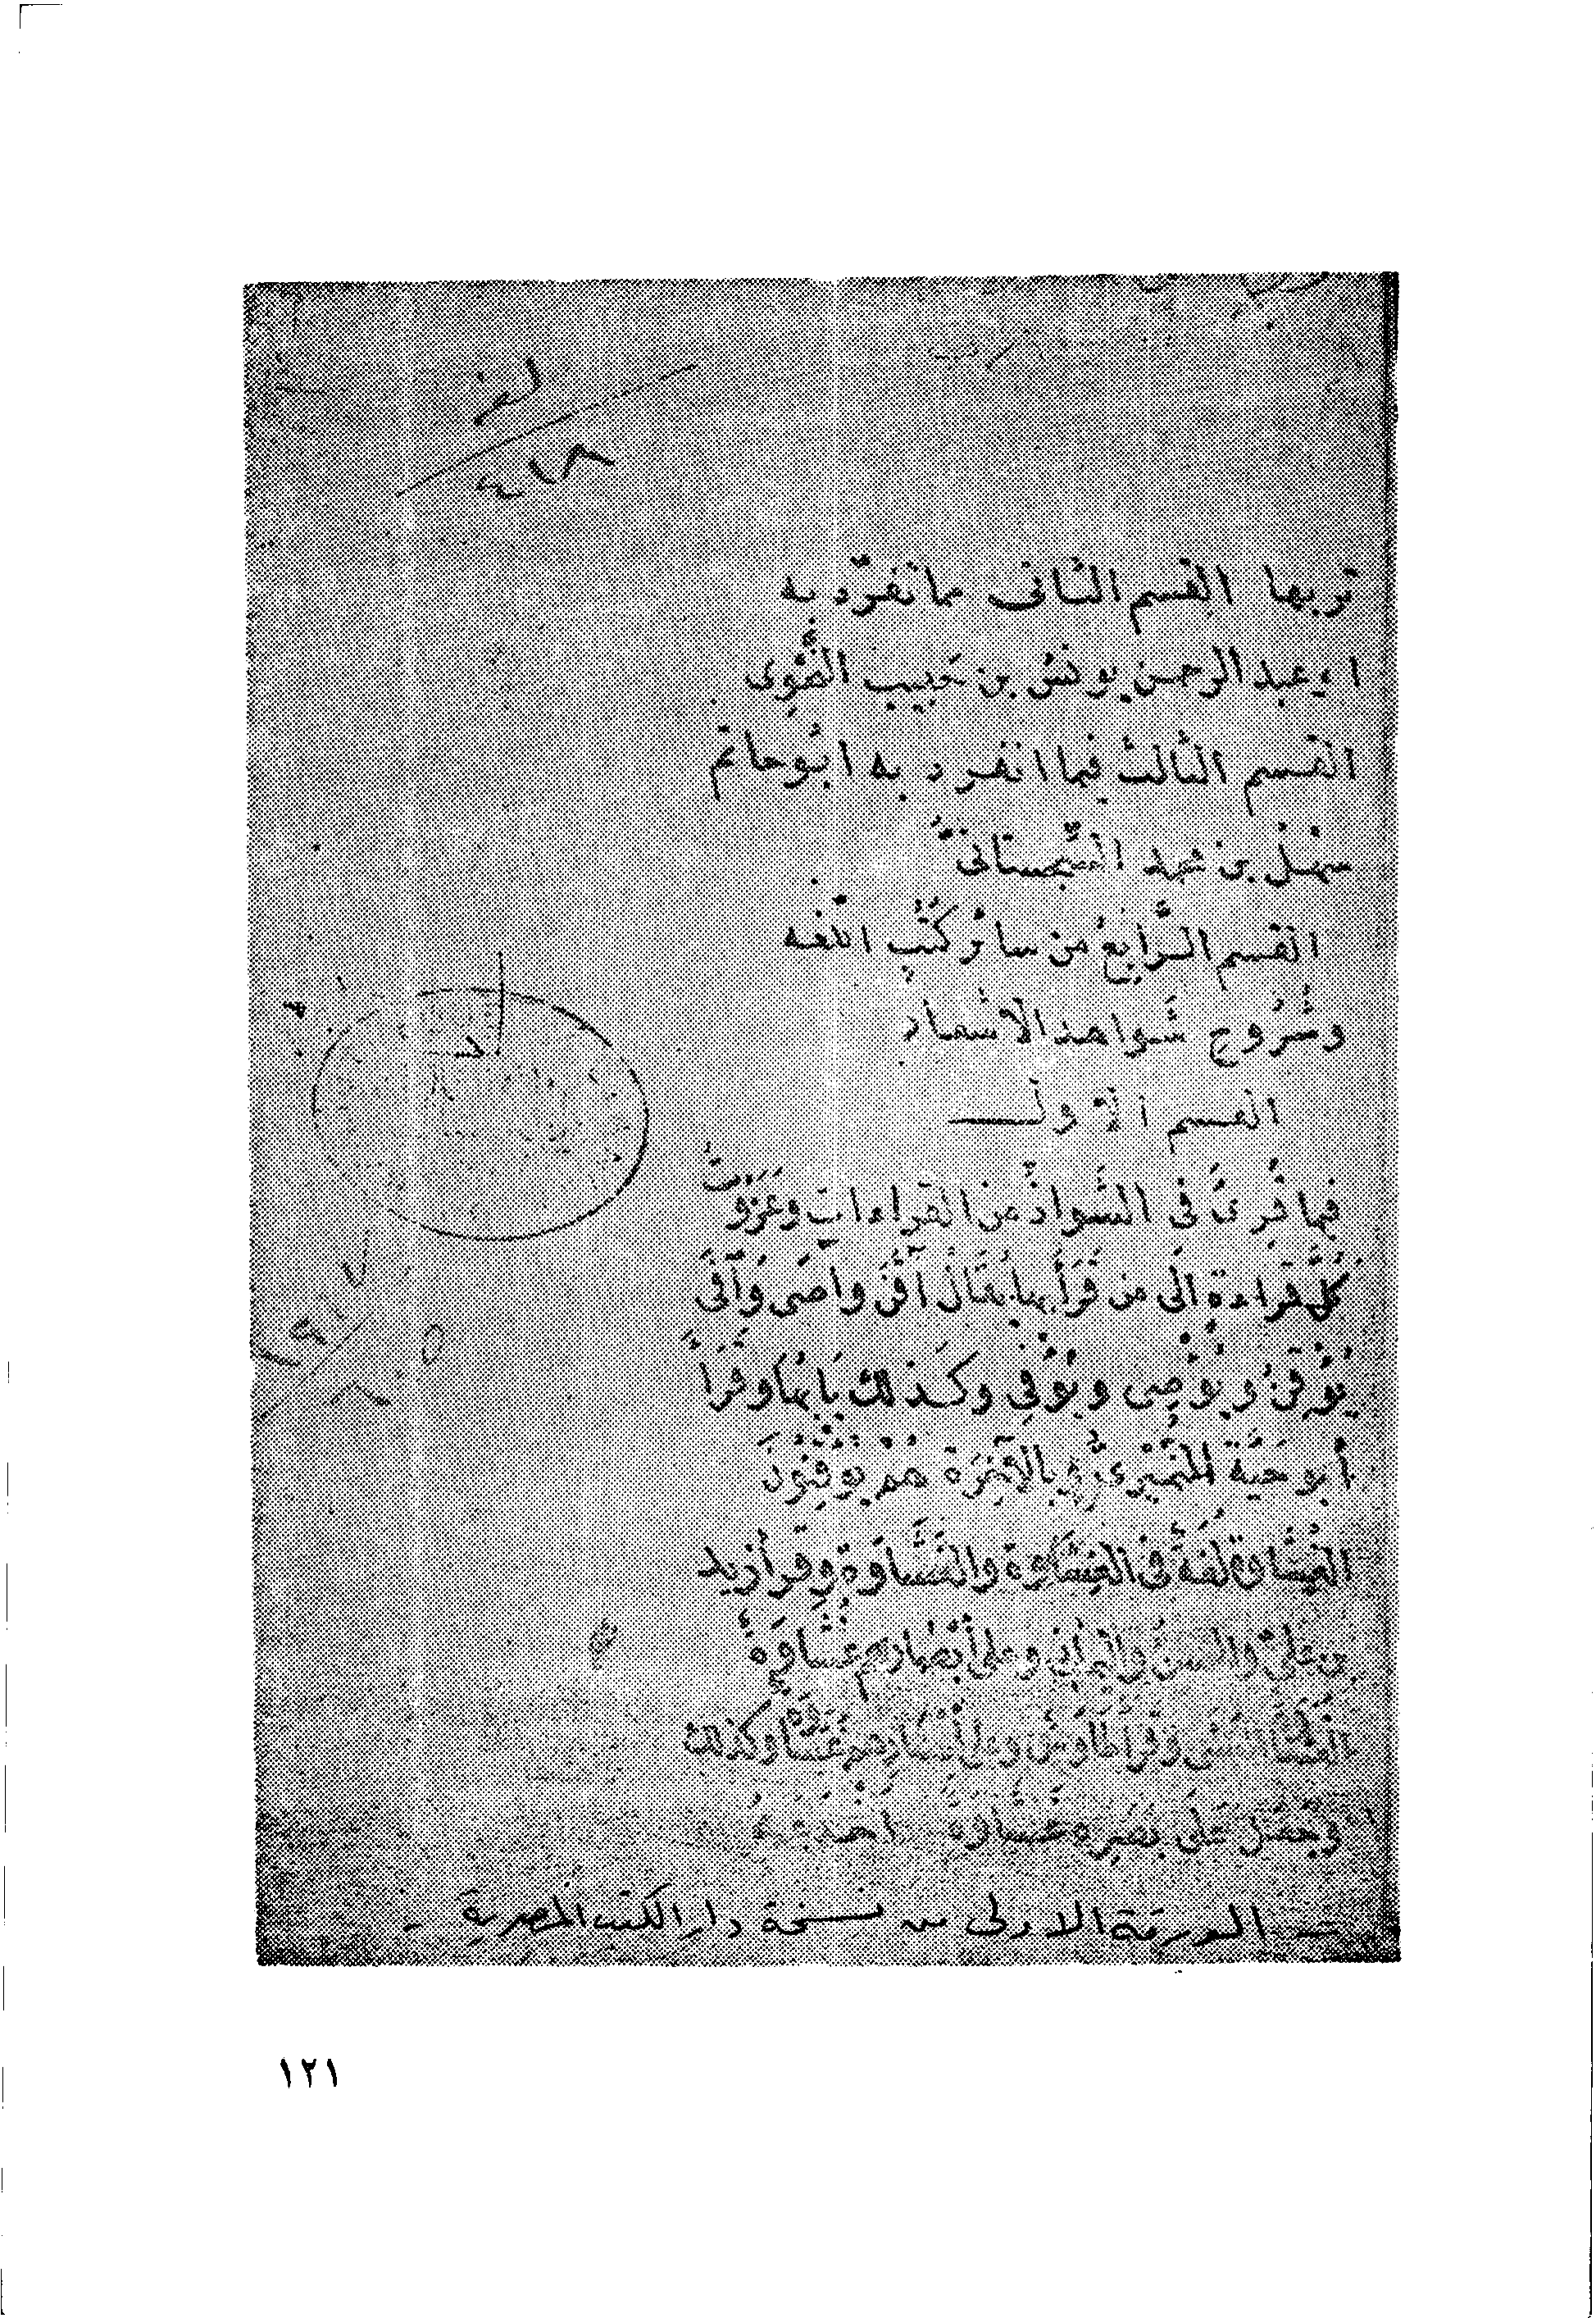 لغة
٤١٨
قربها القسم الثانى مما تفرّد به
ا بوعبد الرحمن يونس بن حَبيب النَّحْوِى
القسم الثالث فيما انفرد به ابُوحاتم
سهْل بن محمد السِّجِستانىّ
القسم الرَّابعُ من سائر كُتُبِ اللغه
وشُرُوحِ شَواهد الاشعار
القسم الاول
فيما قُرِئَ فى الشَّواذّ من القراءات وعَزَوْتُ
كُلَّ قراءة الَى من قَرَأ بها يقال آقَنَ وآصَى وَآفَى
يُؤْقِنُ ويُؤْصِى ويُؤْفِى وكذلك بَابُها وقَرَأَ
أبو حَيَّة النُّمَيْرِىُّ وبالآخِرَة هُمْ يُؤْقِنُونَ
الغُِشَاوة لُغَةٌ فى الغِشَاوة والغَشَاوَة وقرأ زيد
بن علىّ والحسنُ واليمانى وعلى أبْصارهم غُشَاوَةٌ
وقَرأ طَاوسُ وعلى أبصارهم وكذلك
وجَعَل عَلَى بَصَرِهِ
الورقة الاولى من نسخة دار الكتب المصرية
١٢١